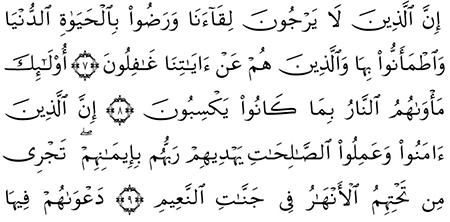 إِنَّ ٱلَّذِينَ لَا يَرْجُونَ لِقَآءَنَا وَرَضُوا۟ بِٱلْحَيَوٰةِ ٱلدُّنْيَا
وَٱطْمَأَنُّوا۟ بِهَا وَٱلَّذِينَ هُمْ عَنْ ءَايَـٰتِنَا غَـٰفِلُونَ ٧ أُو۟لَـٰٓئِكَ
مَأْوَىٰهُمُ ٱلنَّارُ بِمَا كَانُوا۟ يَكْسِبُونَ ٨ إِنَّ ٱلَّذِينَ
ءَامَنُوا۟ وَعَمِلُوا۟ ٱلصَّـٰلِحَـٰتِ يَهْدِيهِمْ رَبُّهُم بِإِيمَـٰنِهِمْ ۖ تَجْرِى
مِن تَحْتِهِمُ ٱلْأَنْهَـٰرُ فِى جَنَّـٰتِ ٱلنَّعِيمِ ٩ دَعْوَىٰهُمْ فِيهَا